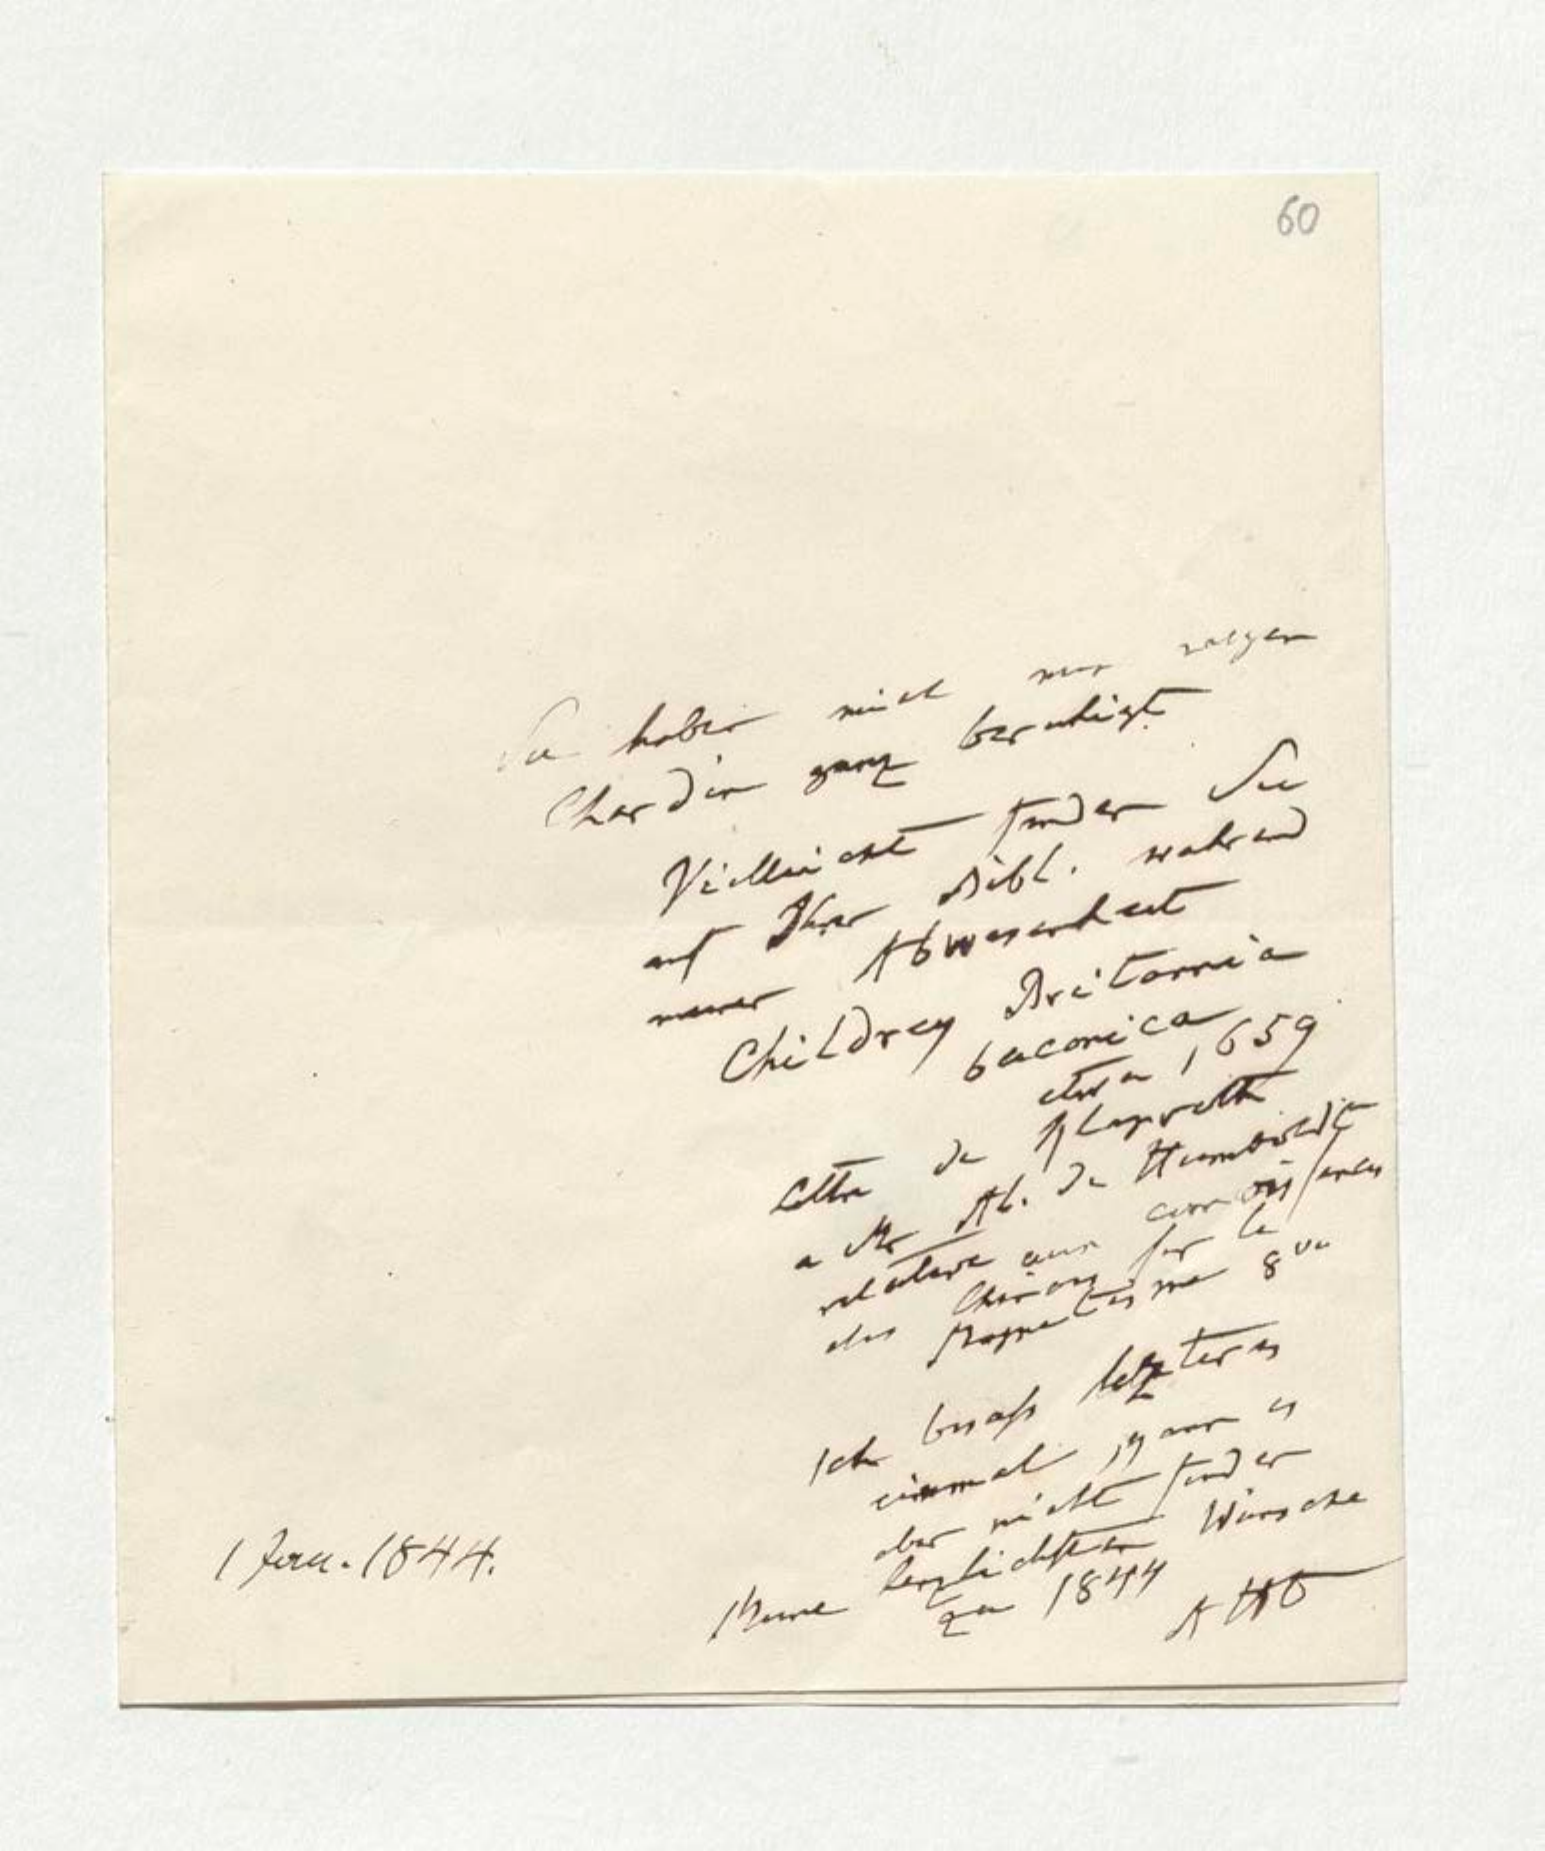 60
Sie haben mich nun wegen
Chardin ganz beruhigt.
Vielleicht finden Sie
auf Ihrer Bibl. während
meiner Abwesenheit
Childrey Britannia
baconica
etwa 1659
Lettre de Klaproth
a Mr Al. de Humboldt
relative aux connoissances
des Chinois sur le
Magnetisme 8vo
Ich besaß letzteres
einmal, kann es
aber nicht finden
Meine herzlichsten Wünsche
zu 1844
AHt
1 Janu. 1844.